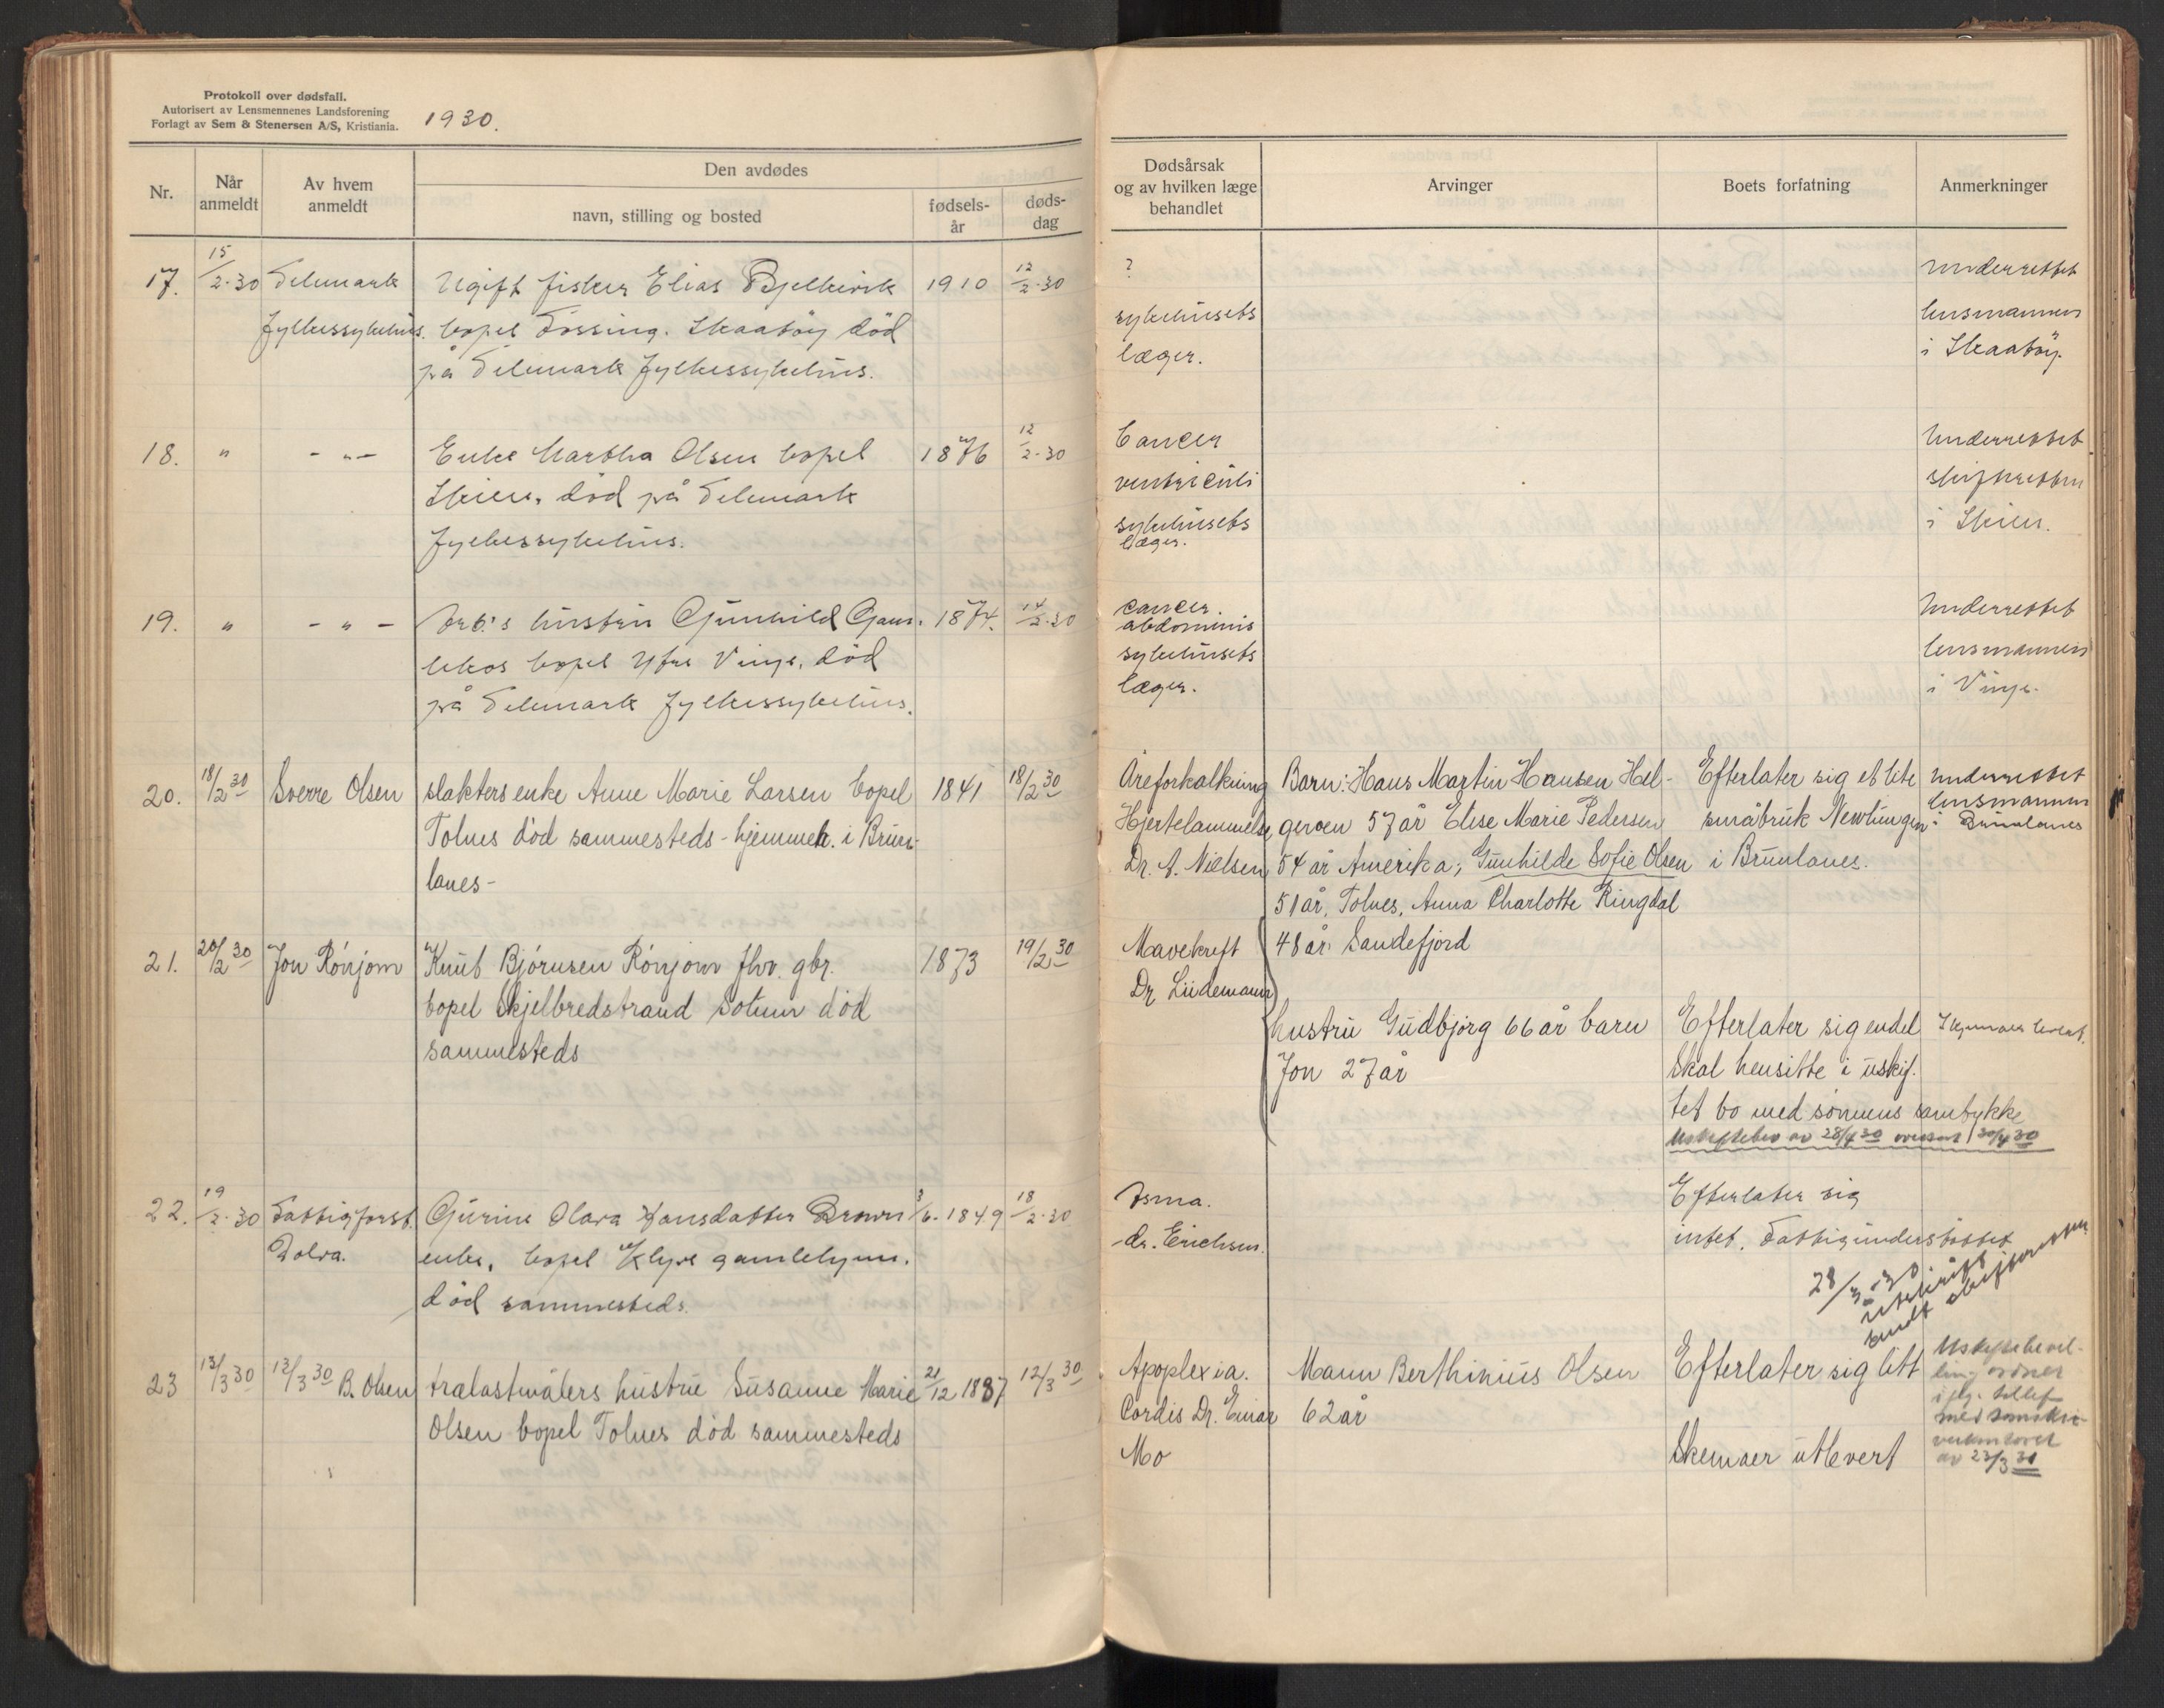 Protokoll over dødsfall.
Autorisert av Lensmennenes Landsforening
Forlagt av Sem & Stenersen A/S, Kristiania.
1930.
Nr.
Når anmeldt
Av hvem anmeldt
Den avdødes
navn, stilling og bosted
fødsels-år
døds-dag
Dødsårsak og av hvilken læge behandlet
Arvinger
Boets forfatning
Anmerkninger
17. 15/2-30 Telemark Ugift fisker Elias 1910 12/2-30 ? Underrettet
Fylkessykehus. bopel Fossing. Skaatöy död sykehusets lensmannen
på Telemark Fylkessykehus. læger. i Skaatöy.
18. " - " - Enke Martha Olsen bopel 1876 12/2-30 Cancer Underrettet
Skien, död på Telemark ventriculi skifteretten
Fylkessykehus. sykehusets i Skien.
læger.
19. " - " - Arb.s hustru Gunhild 1874. 14/2-30 cancer. Underrettet
abdominis
bopel Vinje, död sykehusets lensmannen
på Telemark Fylkessykehus. læger. i Vinje.
20. 18/2 30 Sverre Olsen slakters enke Anne Marie Larsen bopel 1841 18/2 30 Åreforkalkning Barn: Hans Martin Hansen Hel- Efterlater sig et lite Underrettet
Tolnes död sammesteds - hjemmeh. i Brun- Hjertelammelse geroen 57 år Elise Marie Pedersen småbruk i lensmannen
lanes - Dr. A. Nielsen 54 år Amerika; Gunhilde Sofie Olsen i Brunlanes. i Brunlanes
51 år, Tolnes, Anna Charlotte Ringdal
48 år Sandefjord
21. 20/2 30 Jon Rönjom Knut Björnsen Rönjom fhv. gbr. 1873 19/2 30 Mavekreft
bopel Skjelbredstrand Solum död Dr Lüdemann
sammesteds
hustru Gudbjörg 66 år barn Efterlater sig endel
Jon 27 år Skal hensitte i uskif-
tet bo med sönnens samtykke
Uskiftebev av 28/4 30 oversent 30/4 30
22. 19/2-30 Fattigforst. Gurine Olava Hansdatter Brown 3/6-1849 18/2-30 Asma. Efterlater sig
Dolva. enke, bopel Klyve gamlehjem. dr. Erichsen. intet. Fattigunderstöttet
död sammesteds.
28/3-30
utskrift
sendt skifteretten
23 13/3 30 13/3 30 B. Olsen trælastmålers hustru Susanne Marie 21/12 1887 12/3 30 Apoplexia. Mann Berthinius Olsen Efterlater sig litt Uskiftebevil-
Olsen bopel Tolnes död sammesteds Cordis Dr. Einar 62 år ling ordnet
Mo Skemaer utlevert
med sorenskri-
verkontoret
av 23/3 30